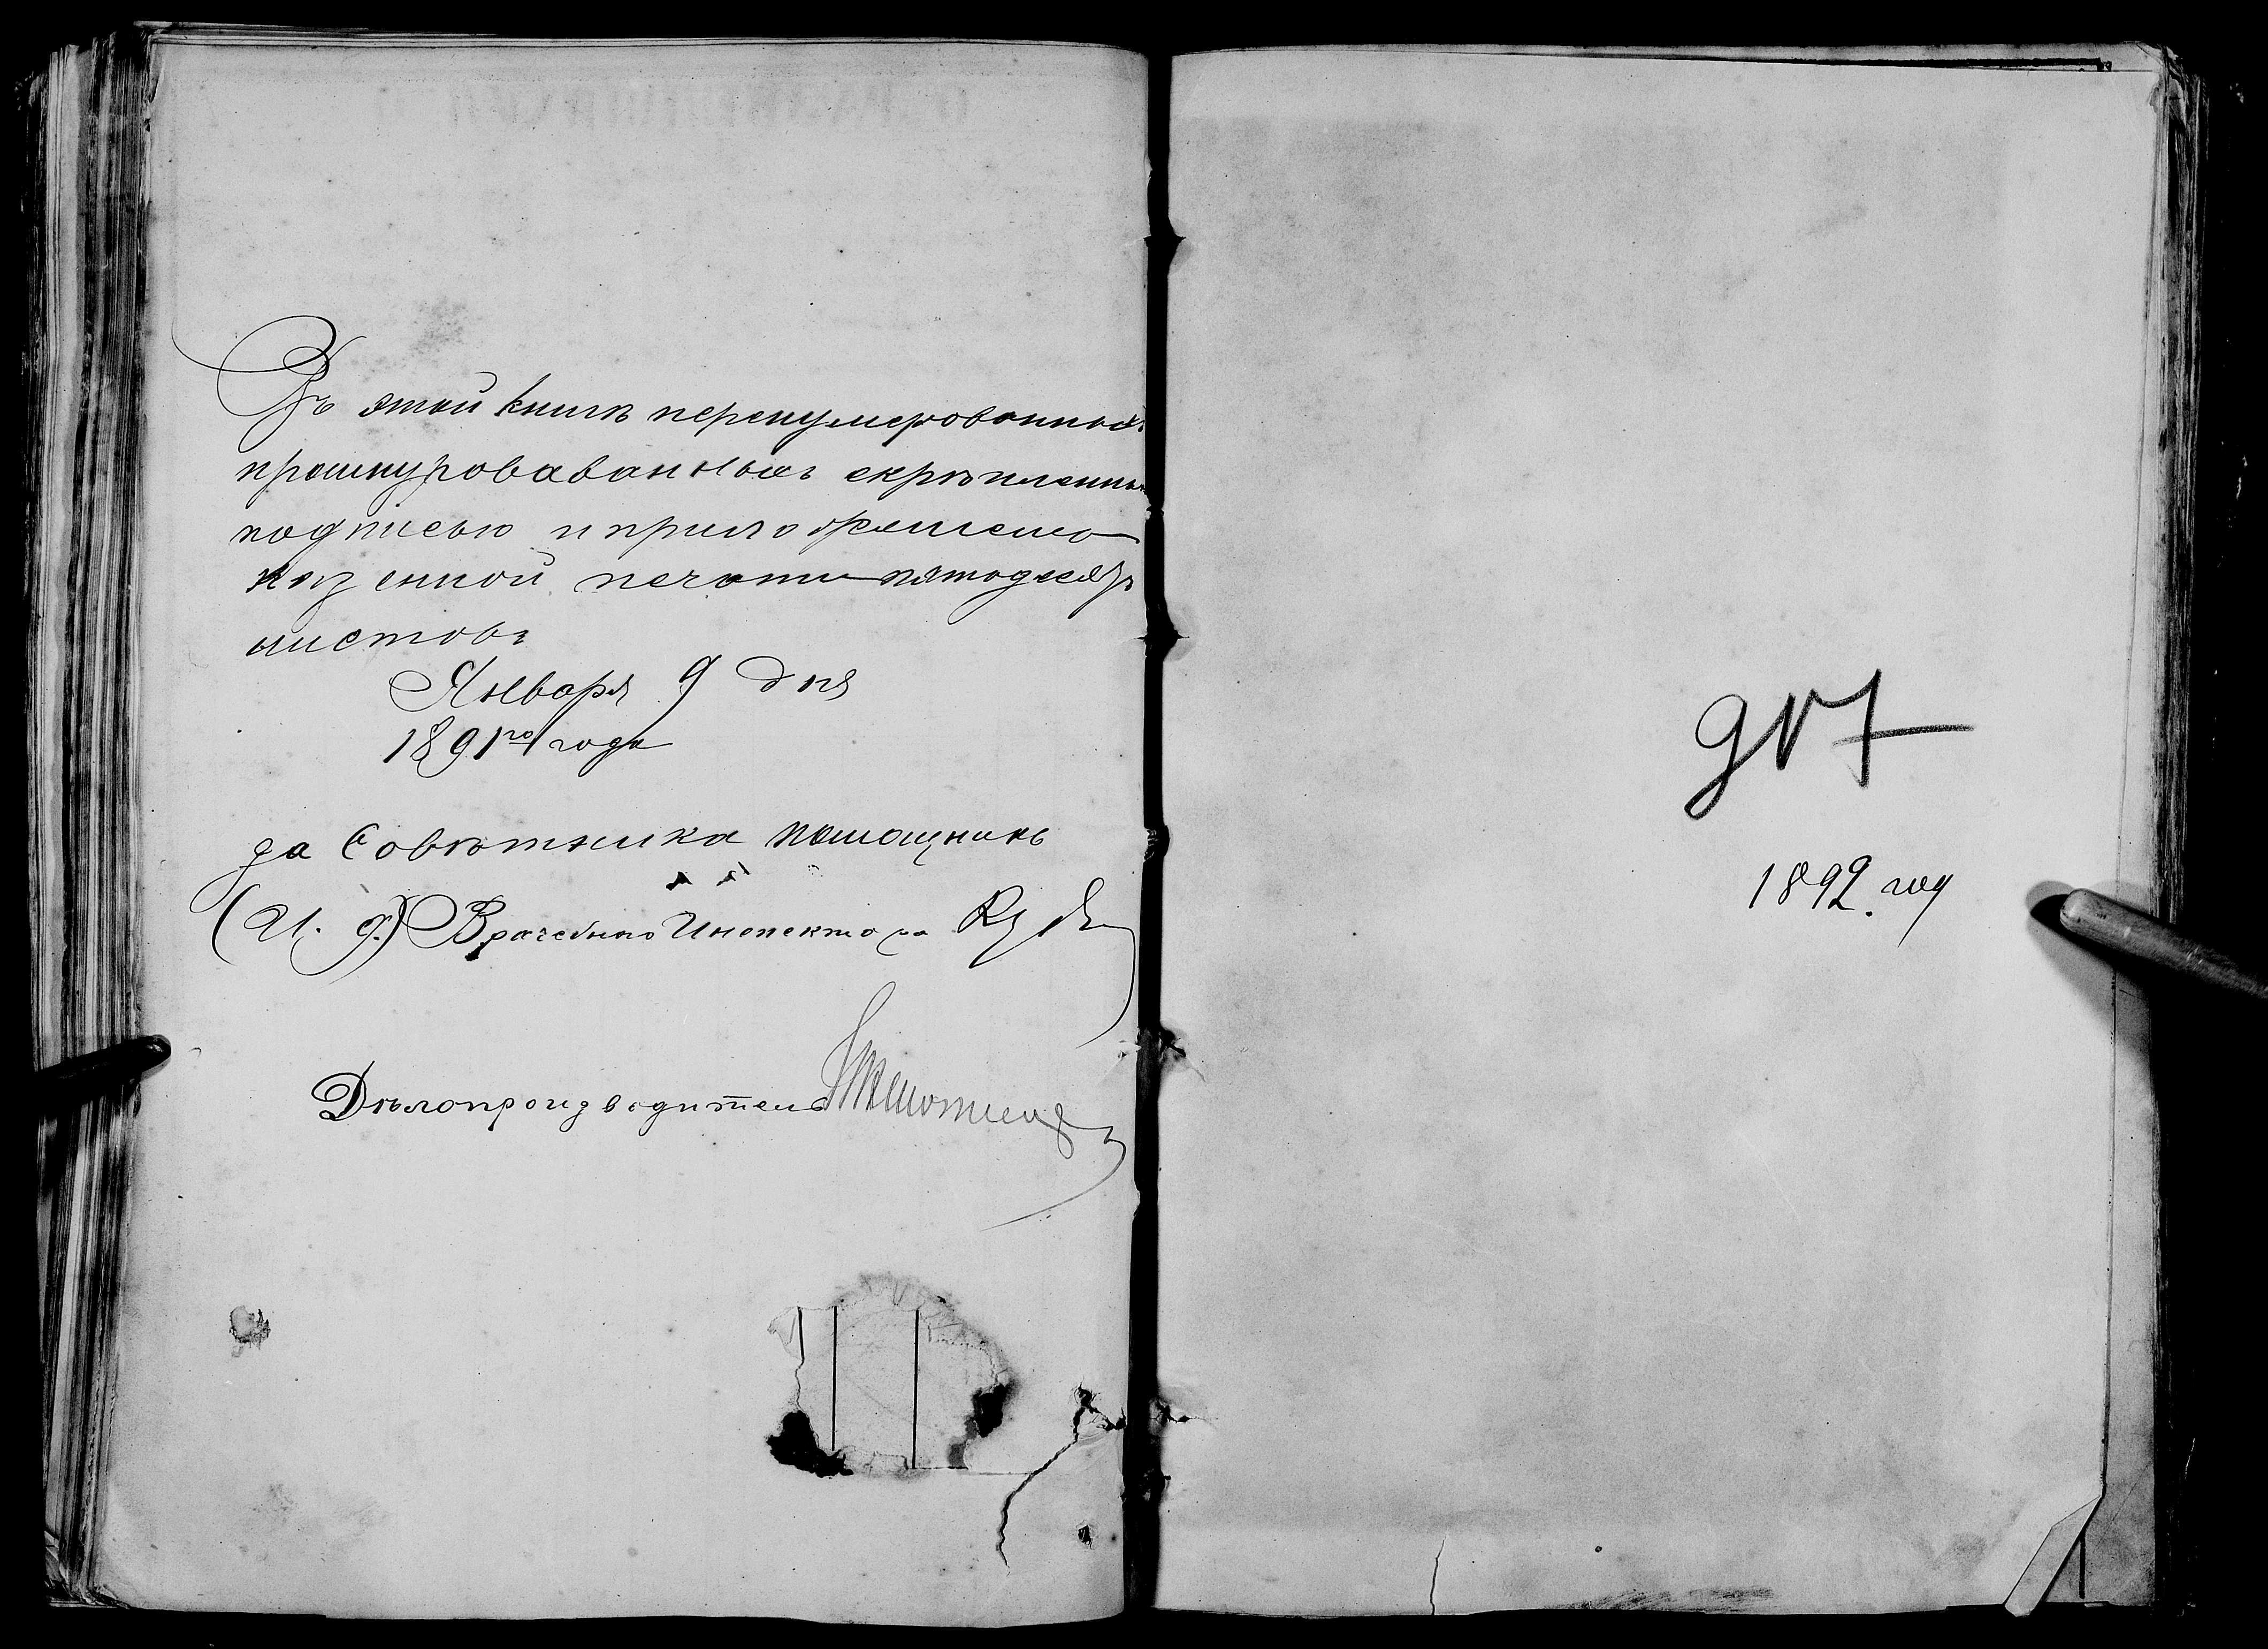 Въ этой книгѣ перенумерованныхъ
прошнуровававанныхъ скрѣпленны
подписью и приложеніемъ
казенной печати пятьдесятъ
листовъ
Января 9 дня
1891го года
За Совѣтника Помощникъ
(И. д.) Врачебнаго Инспектора
Дѣлопроизводитель
1892. год